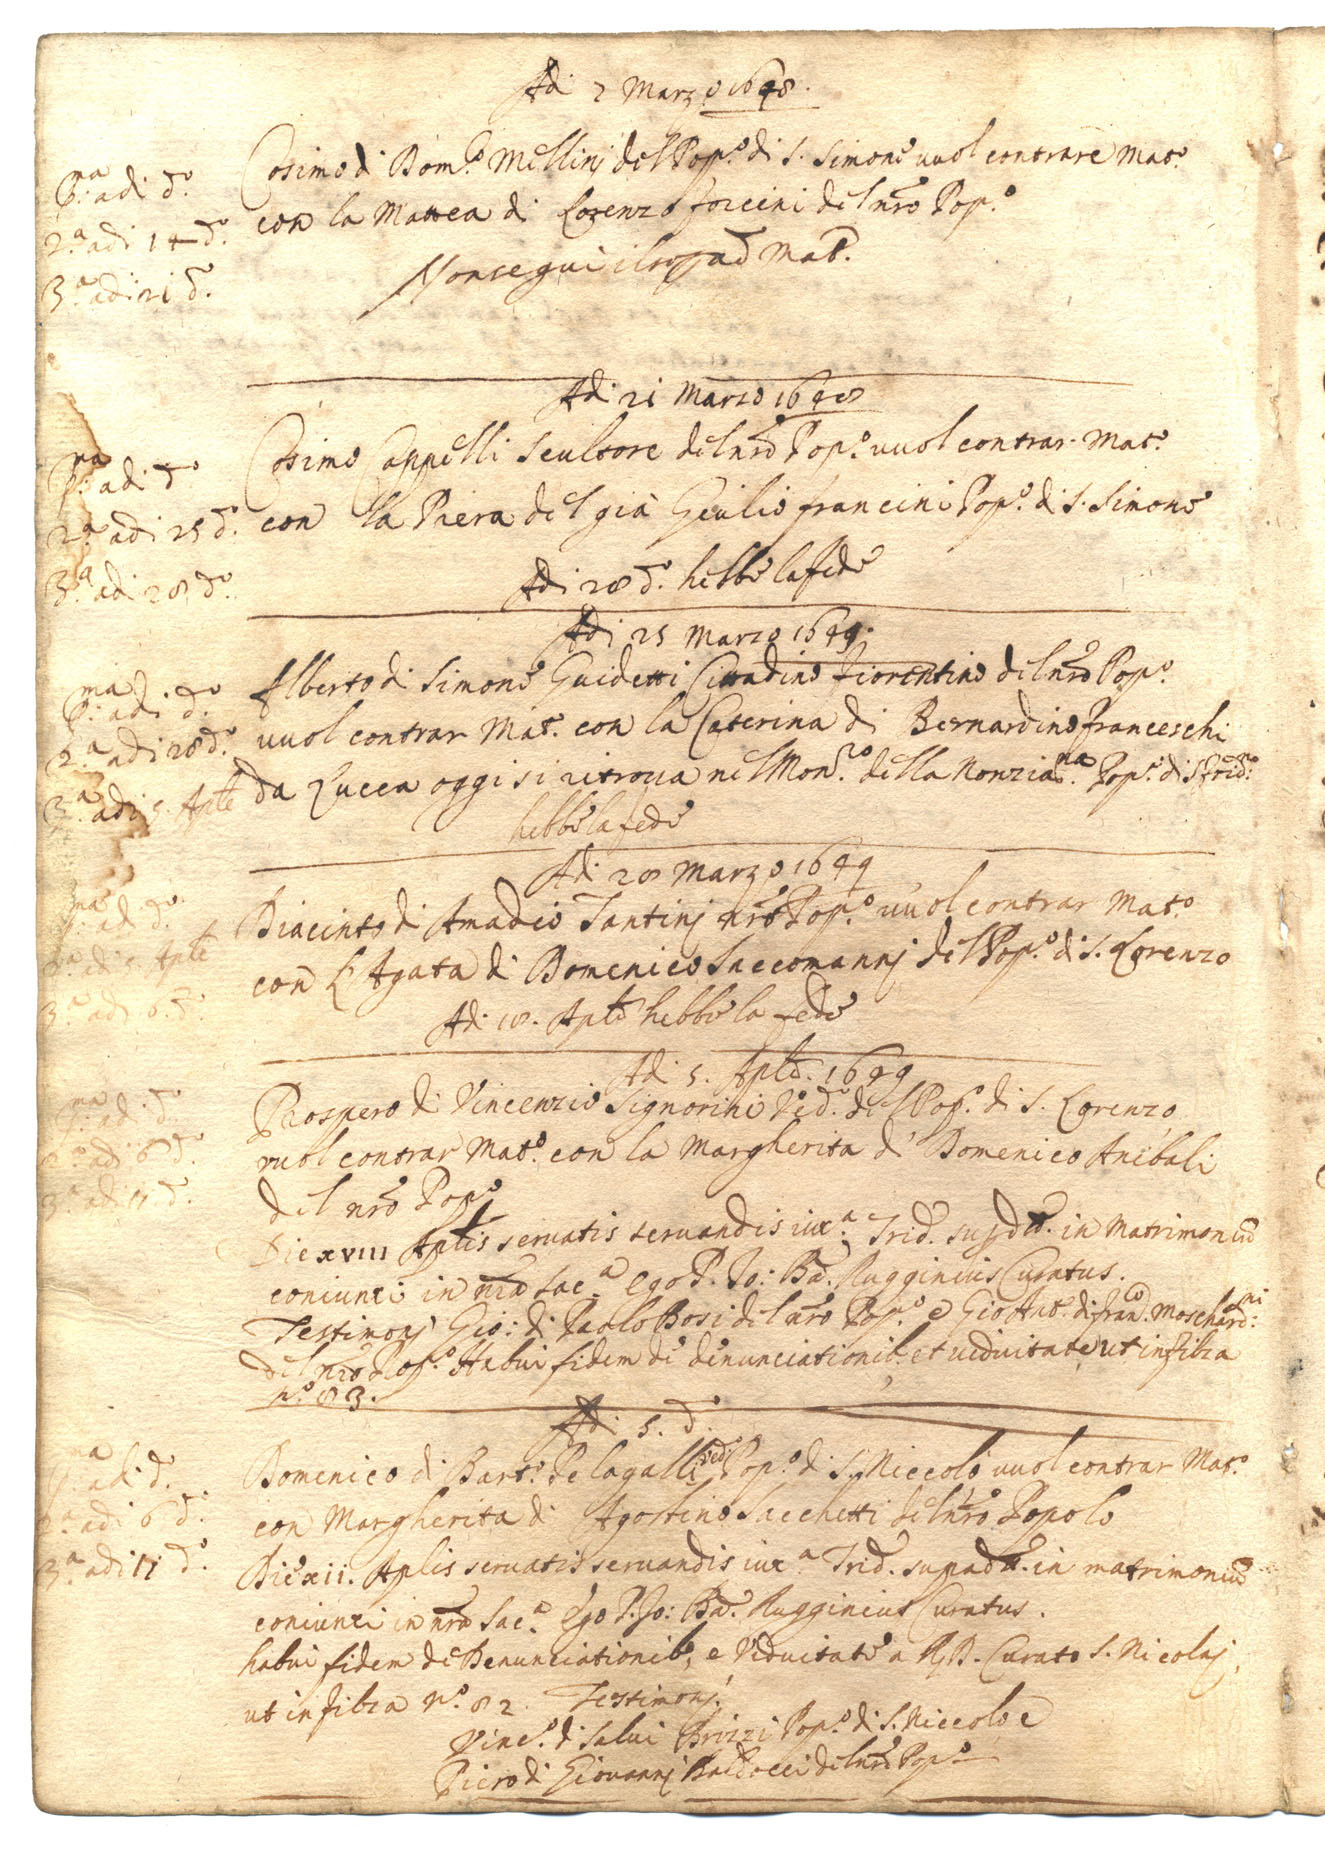 Adi 7 Marzo 1648.
p.ma adi d.o
2.a adi 14 d.o
3.a adi 21 d.o
Cosimo di Dom.o Mellinj del Pop.o di S. Simone vuol contrare Mat.o
con la Mattea di Lorenzo forcini del nro Pop.o
Non segui il Mat.o
Adi 21 Marzo 1648
p.ma adi d.o
2.a adi 25 d.o
3.a adi 28 d.o
Cosimo Cappelli Scultore del nro Pop.o vuol contrar Mat.o
con la Piera del già Giulio francini Pop.o di S. Simone
Adi 28 d.o hebbe la fede
Adi 25 Marzo 1649.
p.ma adi d.o
2.a adi 28 d.o
3.a adi 5. Aple
Alberto di Simone Guidetti Cittadino fiorentino del nro Pop.o
vuol contrar Mat.o con la Caterina di Bernardino franceschi
da Lucca oggi si ritroua nel Mon.ro della Nonziatina Pop.o di S frid.no
hebbe la fede
Adi 28 Marzo 1649
p.ma adi d.o
2.a adi 5. Aple
3.a adi 6. d.o
Diacinto di Amadio Tantinj nro Pop.o vuol contrar Mat.o
con L'Agata di Domenico Saccomannj del Pop.o di S. Lorenzo
Adi 18. Aple hebbe la fede
Adi 5. Aple. 1649
p.ma adi d.o
2.a adi 6 d.o
3.a adi 11 d.o
Prospero di Vincenzio Signorini Ved.o del Pop.o di S. Lorenzo
vuol contrar Mat.o con la Margherita di Domenico Anibali
del nro Pop.o
Die xviii Aplis seruatis seruandis iux.a Trid. in Matrimoniũ
coniunxi in nra Sac.a Ego P. Jo: Ba. Rugginius Curatus.
Testimonj Gio: di Paolo Bosi del nro Pop.o e Gio Ant.o di fran.co Moschard.ni
del nro Pop.o Habui fidem de denunciationib. et uiduitate ut in filza
n.o 83.
Adi 5. d.o
p.ma adi d.o
2.a adi 6 d.o
3.a adi 11 d.o
Domenico di Bart.o Pelagalli ved.o Pop.o di S. Niccolò vuol contrar Mat.o
con Margherita di Agostino Sacchetti del nro Popolo
Die xii. Aplis seruatis seruandis iux.a Trid. in matrimoniũ
coniunxi in nra Sac.a Ego P. Jo: Ba. Rugginius Curatus.
habui fidem de Denunciationib, e Viduitate a R. D. Curato S. Nicolaj,
ut in filza N.o 82. Testimonj
Vinc.o di Salui Brizzi Pop.o di S. Niccolo e
Piero di Giovannj Baldocci del nro Pop.o